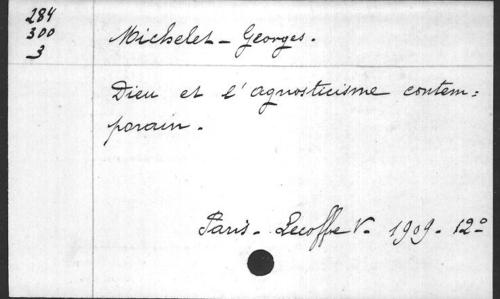 284
300
3
Michelet - Georges.
Dieu et l'agnosticisme contem=
porain.
Paris - Lecoffre V. - 1909 - 12°